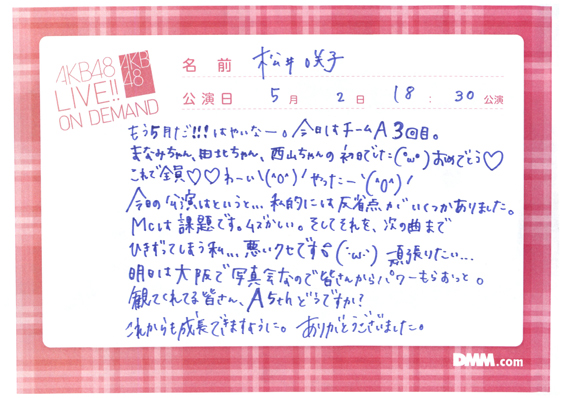 AKB48
LIVE!!
ON DEMAND
AKB
48
名 前 松井咲子
公演日 5月 2日 18:30公演
もう5月だ!!!はやいなー。今日はチームA3回目。
まなみちゃん、田北ちゃん、西山ちゃんの初日でした(°ω°)おめでとう♡
これで全員♡♡わーい\(^o^)/やったー\(^o^)/
今日の公演はというと... 私的には反省点がいくつかありました。
MCは課題です。ムズかしい。そしてそれを、次の曲まで
ひきずってしまう私... 悪いクセです(-ω-) 頑張りたい...
明日は大阪で写真会なので皆さんからパワーもらおっと。
観てくれてる皆さん、A5thどうですか?
これからも成長できますように。ありがとうございました。
DMM.com